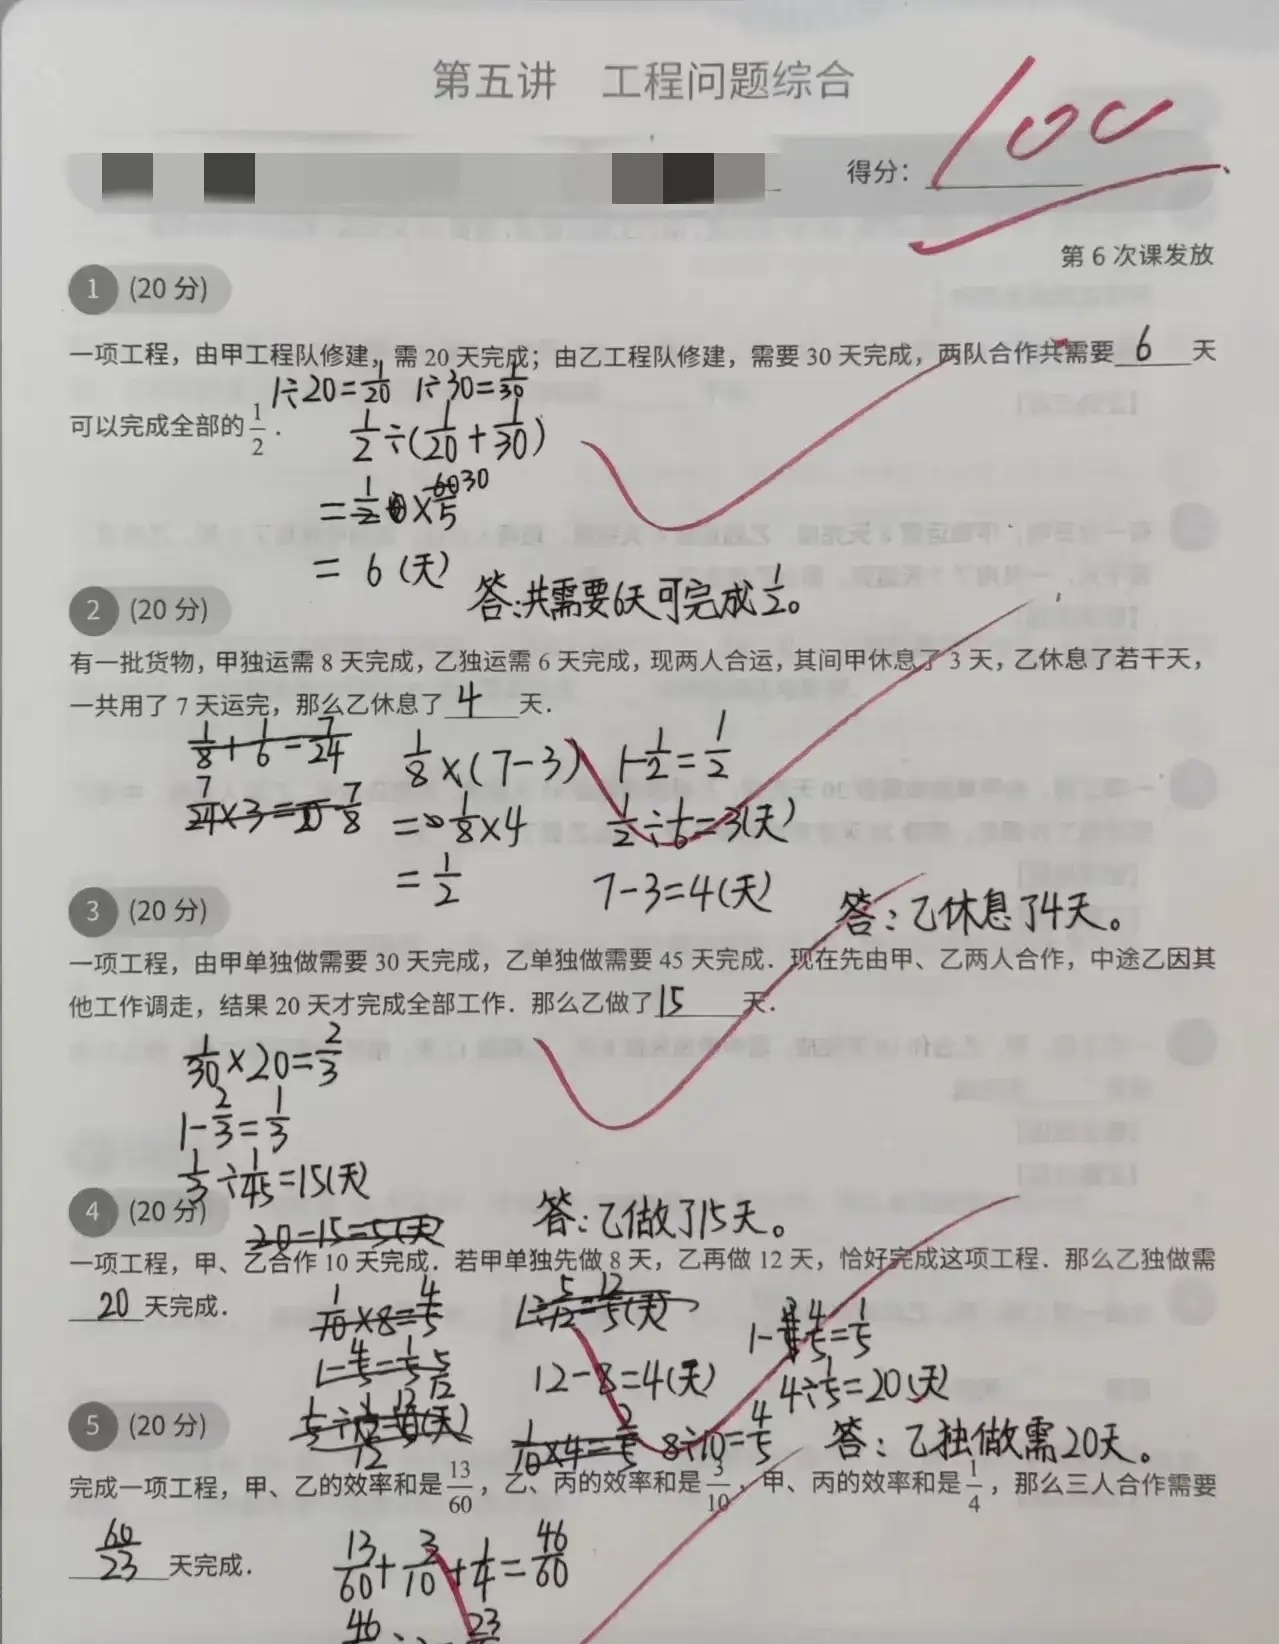 第五讲 工程问题综合
得分: 100
第 6 次课发放
1 (20 分)
一项工程，由甲工程队修建，需 20 天完成；由乙工程队修建，需要 30 天完成，两队合作共需要 6 天
1÷20=1/20 1÷30=1/30
可以完成全部的 1/2 .
1/2÷(1/20+1/30)
=1/2×60/5 30
= 6 (天)
答:共需要6天可完成1/2。
2 (20 分)
有一批货物，甲独运需 8 天完成，乙独运需 6 天完成，现两人合运，其间甲休息了 3 天，乙休息了若干天，
一共用了 7 天运完，那么乙休息了 4 天.
1/8+1/6=7/24 1/8×(7-3) 1-1/2=1/2
7/24×3= 7/8 =1/8×4 1/2÷1/6=3(天)
=1/2 7-3=4(天)
答：乙休息了4天。
3 (20 分)
一项工程，由甲单独做需要 30 天完成，乙单独做需要 45 天完成．现在先由甲、乙两人合作，中途乙因其
他工作调走，结果 20 天才完成全部工作．那么乙做了 15 天.
1/30×20=2/3
1-2/3=1/3
1/3÷1/45=15(天)
20-15=5(天)
答:乙做了15天。
4 (20 分)
一项工程，甲、乙合作 10 天完成．若甲单独先做 8 天，乙再做 12 天，恰好完成这项工程．那么乙独做需
20 天完成.
1/10×8=4/5 1÷5/12=12/5(天) 1-4/5=1/5
1-4/5=1/5 5/12 12-8=4(天) 4÷1/5=20(天)
1/10×4=2/5 8÷10=4/5 答：乙独做需20天。
5 (20 分)
完成一项工程，甲、乙的效率和是 13/60，乙、丙的效率和是 3/10，甲、丙的效率和是 1/4，那么三人合作需要
60/23 天完成.
13/60+3/10+1/4=46/60
46 23